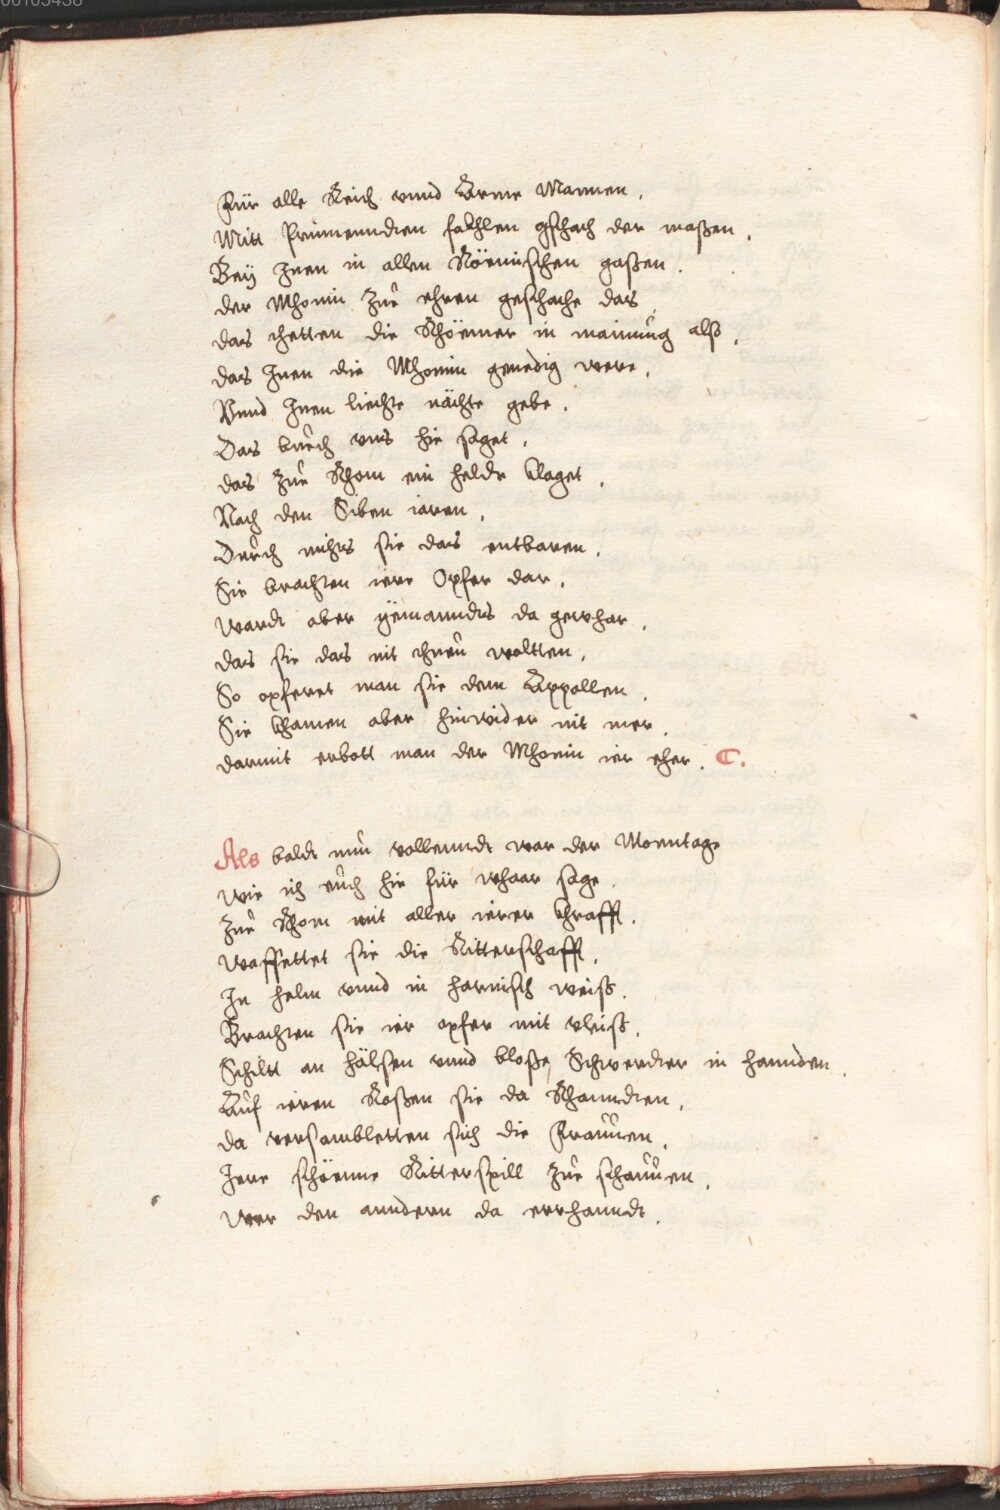 00103438
Für alle Reich vnnd Arme Mannen.
Mitt Prinnenndten fakhlen gschach der maßen.
Bey Inen in allen Römischen gaßen.
der Mhonin Zue ehren geschache das
das thetten die Rhömer in mainung alß.
das Inen die Mhonin genedig were.
Vnnd Inen liechte nächte gebe.
Das buech vns hie saget.
das zue Rhom ein helde klaget.
Nach den Siben iaren.
Durch nichts sie das entbaren.
Sie brachten iere Opfer dar.
Wardt aber yemanndts da gewhar.
das sie das nit thuen wolten.
So opferet man sie dem Appollen.
Sie khamen aber hinwider nit mer.
darmit erbott man der Mhonin ier eher. C.
Als baldt nun vollenndt war der Monntage
wie ich euch hie für whaar sage.
Zue Rhom mit aller ierer khrafft.
Waffettet sie die Ritterschafft.
In helm vnnd in harnisch weiß.
Brachten sie ier opfer mit vleiß.
Schiltt an hälsen vnnd bloße Schwerdter in hannden.
Auf ieren Roßen sie da Rhanndten.
da versambletten sich die Frauuen.
Iere schöenne Ritterspill zue schauuen.
Wer den anndern da errhanndt.